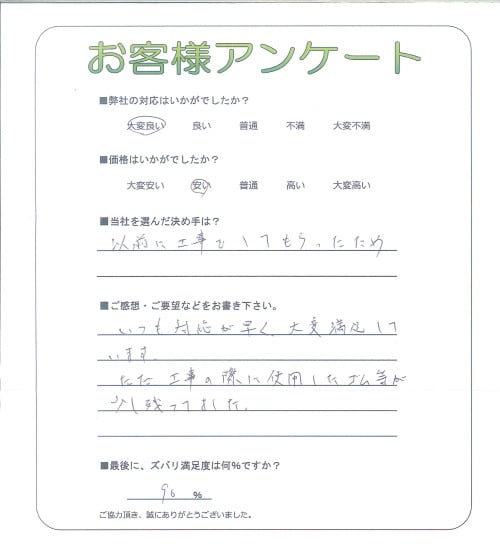 お客様アンケート
■弊社の対応はいかがでしたか?
大変良い 良い 普通 不満 大変不満
■価格はいかがでしたか?
大変安い 安い 普通 高い 大変高い
■当社を選んだ決め手は?
以前に工事でしてもらったため
■ご感想・ご要望などをお書き下さい。
いつも対応が早く、大変満足して
います。
ただ工事の際に使用したゴム等が
少し残ってました。
■最後に、ズバリ満足度は何%ですか?
90 %
ご協力頂き、誠にありがとうございました。